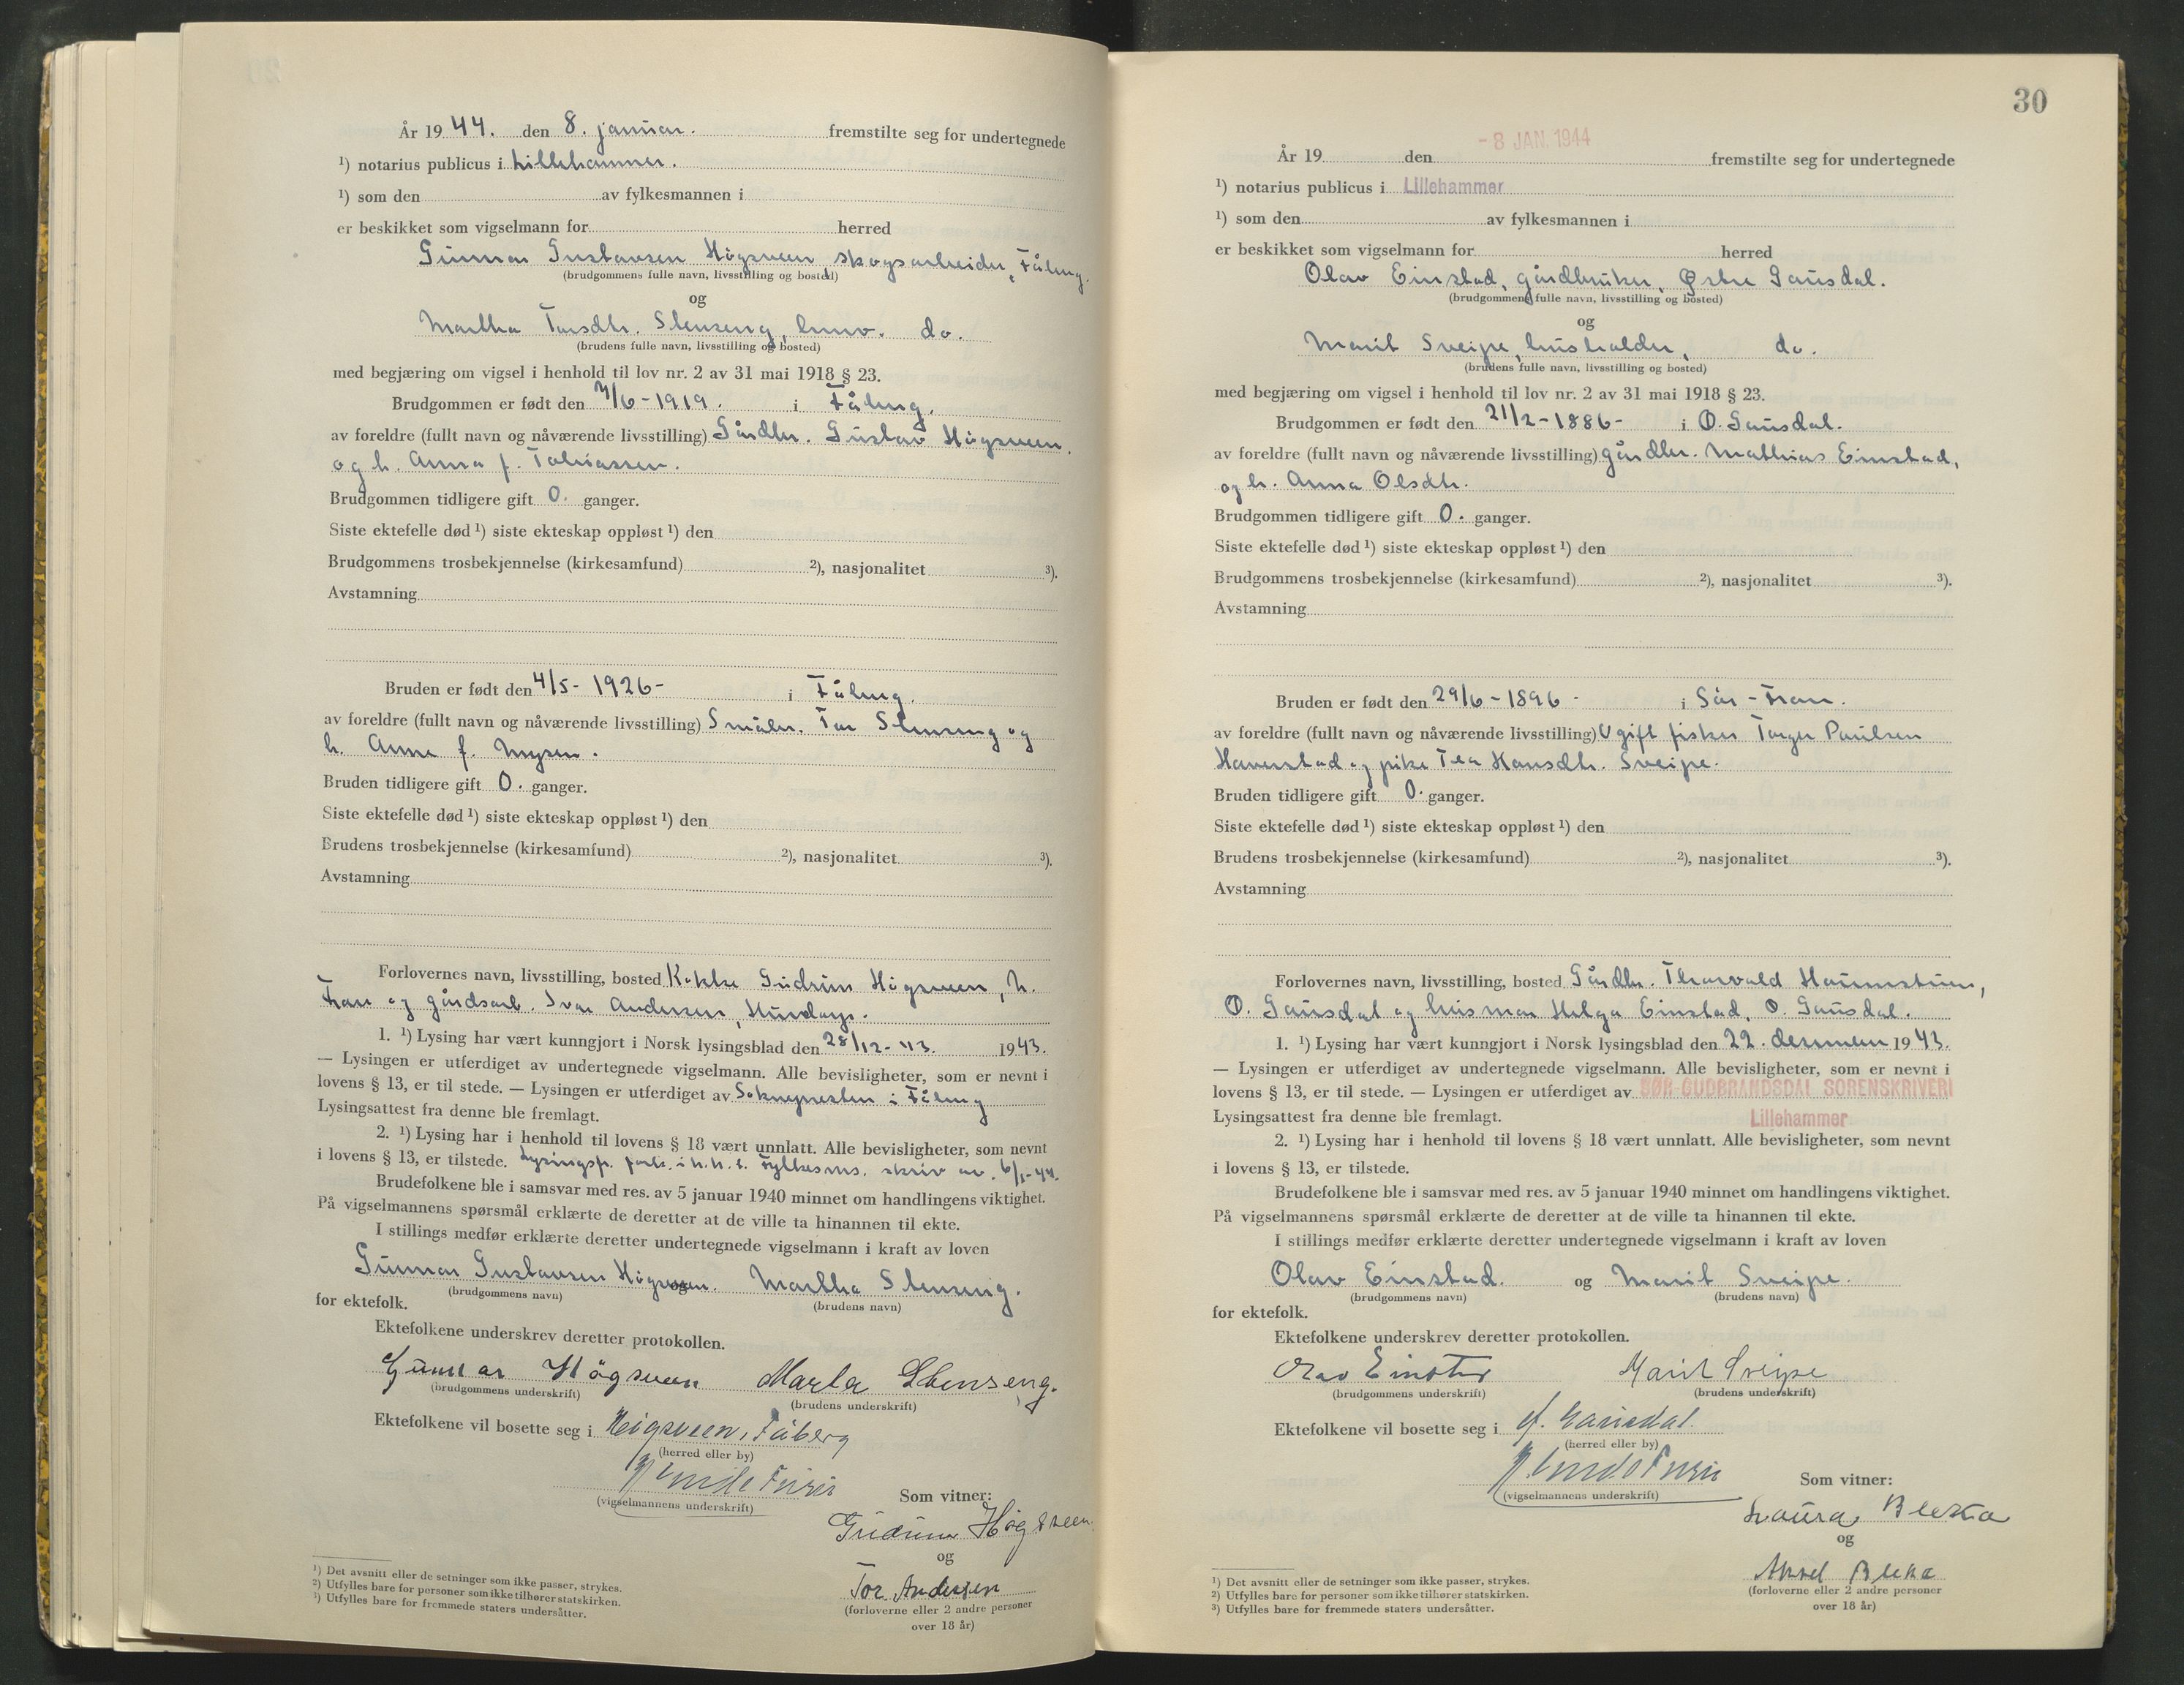 År 1944. den 8. januar. fremstilte seg for undertegnede
¹) notarius publicus i Lillehammer.
¹) som den av fylkesmannen i
er beskikket som vigselmann for herred
Gunnar Gustavsen Högsveen skogsarbeider, Fåberg.
(brudgommens fulle navn, livsstilling og bosted)
og
Martha Torsdtr. Stenseng, hmv. do.
(brudens fulle navn, livsstilling og bosted)
med begjæring om vigsel i henhold til lov nr. 2 av 31 mai 1918 § 23.
Brudgommen er født den /6-1919. i Fåberg.
av foreldre (fullt navn og nåværende livsstilling) Gårdbr. Gustav Högsveen,
og h. Anna f. Tobiassen.
Brudgommen tidligere gift 0. ganger.
Siste ektefelle død ¹) siste ekteskap oppløst ¹) den
Brudgommens trosbekjennelse (kirkesamfund) ²), nasjonalitet ³).
Avstamning
Bruden er født den 4/5- 1926- i Fåberg.
av foreldre (fullt navn og nåværende livsstilling) Småbr. Tor Stenseng og
h. Anne f. Mysen.
Bruden tidligere gift 0. ganger.
Siste ektefelle død ¹) siste ekteskap oppløst ¹) den
Brudens trosbekjennelse (kirkesamfund) ²), nasjonalitet ³).
Avstamning
Forlovernes navn, livsstilling, bosted Kokke Gudrun Högsveen, N.
Fron og gårdsarb. Ivar Andersen, Hundorp.
1. ¹) Lysing har vært kunngjort i Norsk lysingsblad den 28/12-43. 1943.
— Lysingen er utferdiget av undertegnede vigselmann. Alle bevisligheter, som er nevnt i
lovens § 13, er til stede. — Lysingen er utferdiget av Soknepresten i Fåberg
Lysingsattest fra denne ble fremlagt.
2. ¹) Lysing har i henhold til lovens § 18 vært unnlatt. Alle bevisligheter, som nevnt
i lovens § 13, er tilstede. Lysingsfr. fork. i h.h.t. Fylkesms. skriv av 6/1-44.
Brudefolkene ble i samsvar med res. av 5 januar 1940 minnet om handlingens viktighet.
På vigselmannens spørsmål erklærte de deretter at de ville ta hinannen til ekte.
I stillings medfør erklærte deretter undertegnede vigselmann i kraft av loven
Gunnar Gustavsen Högsveen. og Martha Stenseng.
(brudgommens navn) (brudens navn)
for ektefolk.
Ektefolkene underskrev deretter protokollen.
Gunnar Högsveen Marta Stenseng.
(brudgommens underskrift) (brudens underskrift)
Ektefolkene vil bosette seg i Høigsveen, Fåberg
(herred eller by)
(vigselmannens underskrift)
Som vitner:
Gudrun Högsveen.
og
Tor Andersen
(forloverne eller 2 andre personer
over 18 år)
¹) Det avsnitt eller de setninger som ikke passer, strykes.
²) Utfylles bare for personer som ikke tilhører statskirken.
³) Utfylles bare for fremmede staters undersåtter.
30
- 8 JAN. 1944
År 19 den fremstilte seg for undertegnede
¹) notarius publicus i Lillehammer
¹) som den av fylkesmannen i
er beskikket som vigselmann for herred
Olav Einstad, gårdbruker, Østre Gausdal.
(brudgommens fulle navn, livsstilling og bosted)
og
Marit Sveipe, husholder, do.
(brudens fulle navn, livsstilling og bosted)
med begjæring om vigsel i henhold til lov nr. 2 av 31 mai 1918 § 23.
Brudgommen er født den 21/2-1886- i Ø. Gausdal.
av foreldre (fullt navn og nåværende livsstilling) gårdbr. Mathias Einstad,
og h. Anna Olsdtr.
Brudgommen tidligere gift 0. ganger.
Siste ektefelle død ¹) siste ekteskap oppløst ¹) den
Brudgommens trosbekjennelse (kirkesamfund) ²), nasjonalitet ³).
Avstamning
Bruden er født den 29/6-1896- i Sør-Fron.
av foreldre (fullt navn og nåværende livsstilling) Ugift fisker Torger Paulsen
Haverstad og pike Tea Hansdtr. Sveipe.
Bruden tidligere gift 0. ganger.
Siste ektefelle død ¹) siste ekteskap oppløst ¹) den
Brudens trosbekjennelse (kirkesamfund) ²), nasjonalitet ³).
Avstamning
Forlovernes navn, livsstilling, bosted Gårdbr. Thorvald
Ø. Gausdal og husmor Helga Einstad, Ø. Gausdal.
1. ¹) Lysing har vært kunngjort i Norsk lysingsblad den 22. desember 1943.
— Lysingen er utferdiget av undertegnede vigselmann. Alle bevisligheter, som er nevnt i
lovens § 13, er til stede. — Lysingen er utferdiget av SØR-GUDBRANDSDAL SORENSKRIVERI
Lysingsattest fra denne ble fremlagt. Lillehammer
2. ¹) Lysing har i henhold til lovens § 18 vært unnlatt. Alle bevisligheter, som nevnt
i lovens § 13, er tilstede.
Brudefolkene ble i samsvar med res. av 5 januar 1940 minnet om handlingens viktighet.
På vigselmannens spørsmål erklærte de deretter at de ville ta hinannen til ekte.
I stillings medfør erklærte deretter undertegnede vigselmann i kraft av loven
Olav Einstad. og Marit Sveipe.
(brudgommens navn) (brudens navn)
for ektefolk.
Ektefolkene underskrev deretter protokollen.
Olav Einstad Marit Sveipe
(brudgommens underskrift) (brudens underskrift)
Ektefolkene vil bosette seg i Ø. Gausdal.
(herred eller by)
(vigselmannens underskrift)
Som vitner:
Laura Bleka
og
Aksel Bleka
(forloverne eller 2 andre personer
over 18 år)
¹) Det avsnitt eller de setninger som ikke passer, strykes.
²) Utfylles bare for personer som ikke tilhører statskirken.
³) Utfylles bare for fremmede staters undersåtter.